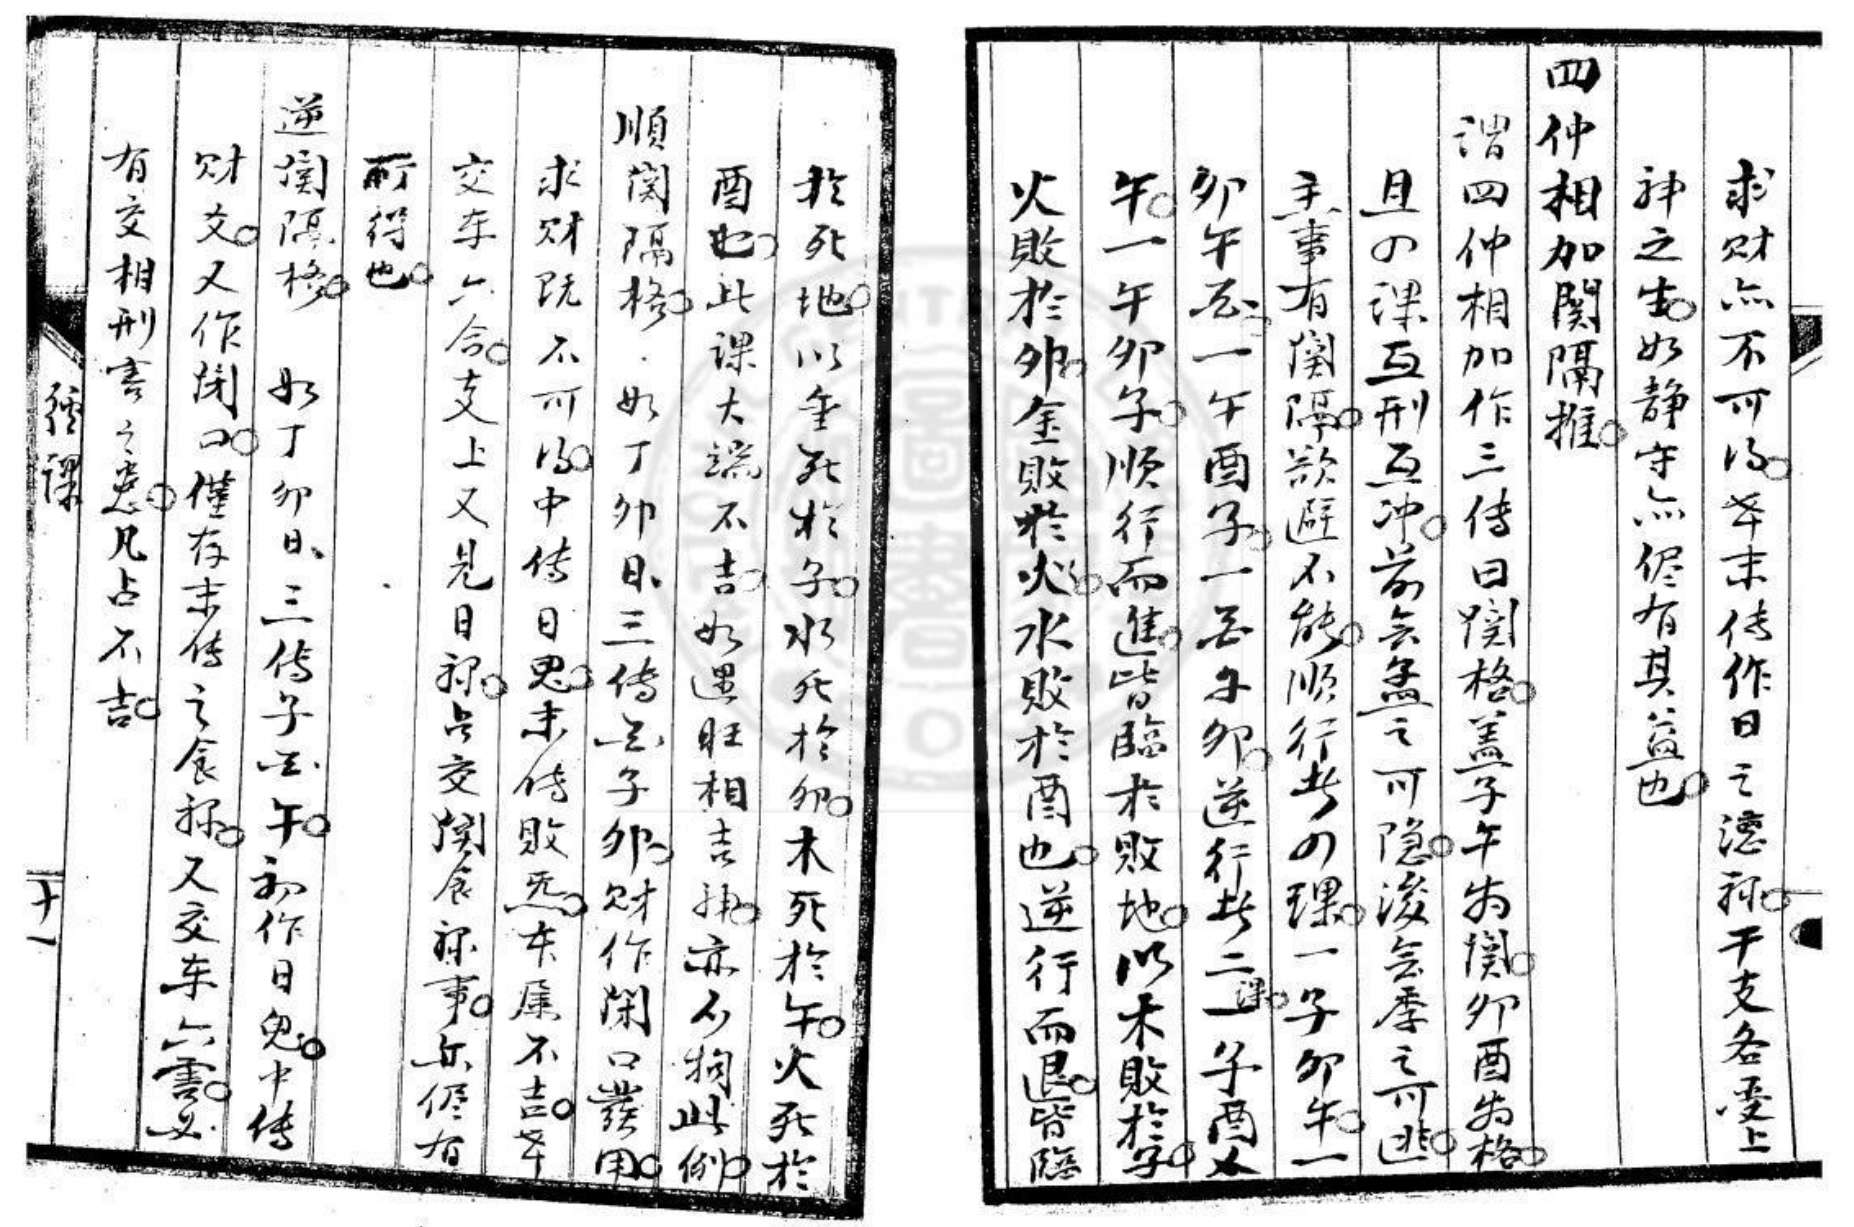 求财亦不可得幸末传作日之德禄干支各受上
神之生如静守亦侭有其益也
四仲相加関隔推
谓四仲相加作三传曰関格盖子午为関卯酉为格
且の课互刑互冲前无孟之可隐後无季之可进
主事有関隔欲避不能顺行此の理一子卯午一
卯午酉一午酉子一酉子卯逆行此二课一子酉
午一午卯子顺行而進皆臨於敗地以木敗於子
火敗於卯金敗於火水敗於酉也逆行而退皆臨
於死地以金死於子水死於卯木死於午火死於
酉也此课大端不吉如遇旺相吉神亦不拘此例
順関隔格 如丁卯日三传酉子卯财作闭口發用
求财既不可得中传日鬼末传败炁本属不吉幸
交车六合支上又見日禄占交関食禄事亦侭有
所得也
逆関隔格 如丁卯日三传子酉午初作日鬼中传
财爻又作闭口僅存末传之食禄又交车六害
有交相刑害之患凡占不吉
經课
十一